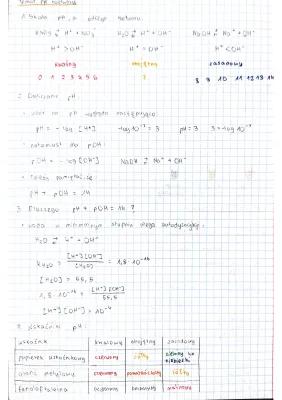 1. Skala pH, a odczyn roztworu.
HNO₃ ⇄ H⁺ + NO₃⁻ H₂O ⇄ H⁺ + OH⁻ NaOH ⇄ Na⁺ + OH⁻
H⁺ > OH⁻ H⁺ = OH⁻ H⁺ < OH⁻
kwaśny obojętny zasadowy
0 1 2 3 4 5 6 7 8 9 10 11 12 13 14
2. Obliczanie pH:
pH = - log [H⁺] pH = 3
natomiast dla pOH:
pOH = - log [OH⁻] NaOH ⇄ Na⁺ + OH⁻
pH + pOH = 14
3. Dlaczego pH + pOH = 14?
woda w minimalnym stopniu ulega autodysocjacji:
H₂O ⇄ H⁺ + OH⁻
= [H⁺][OH⁻] / [H₂O] = 1,8 · 10⁻¹⁶
[H₂O] = 55,5
1,8 · 10⁻¹⁶ = [H⁺][OH⁻] / 55,5
[H⁺][OH⁻] = 10⁻¹⁴
4. Wskaźniki pH:
wskaźnik kwasowy obojętny zasadowy
papierek uniwersalny czerwony żółty
oranż metylowy czerwony pomarańczowy żółty
fenoloftaleina bezbarwny bezbarwny malinowy